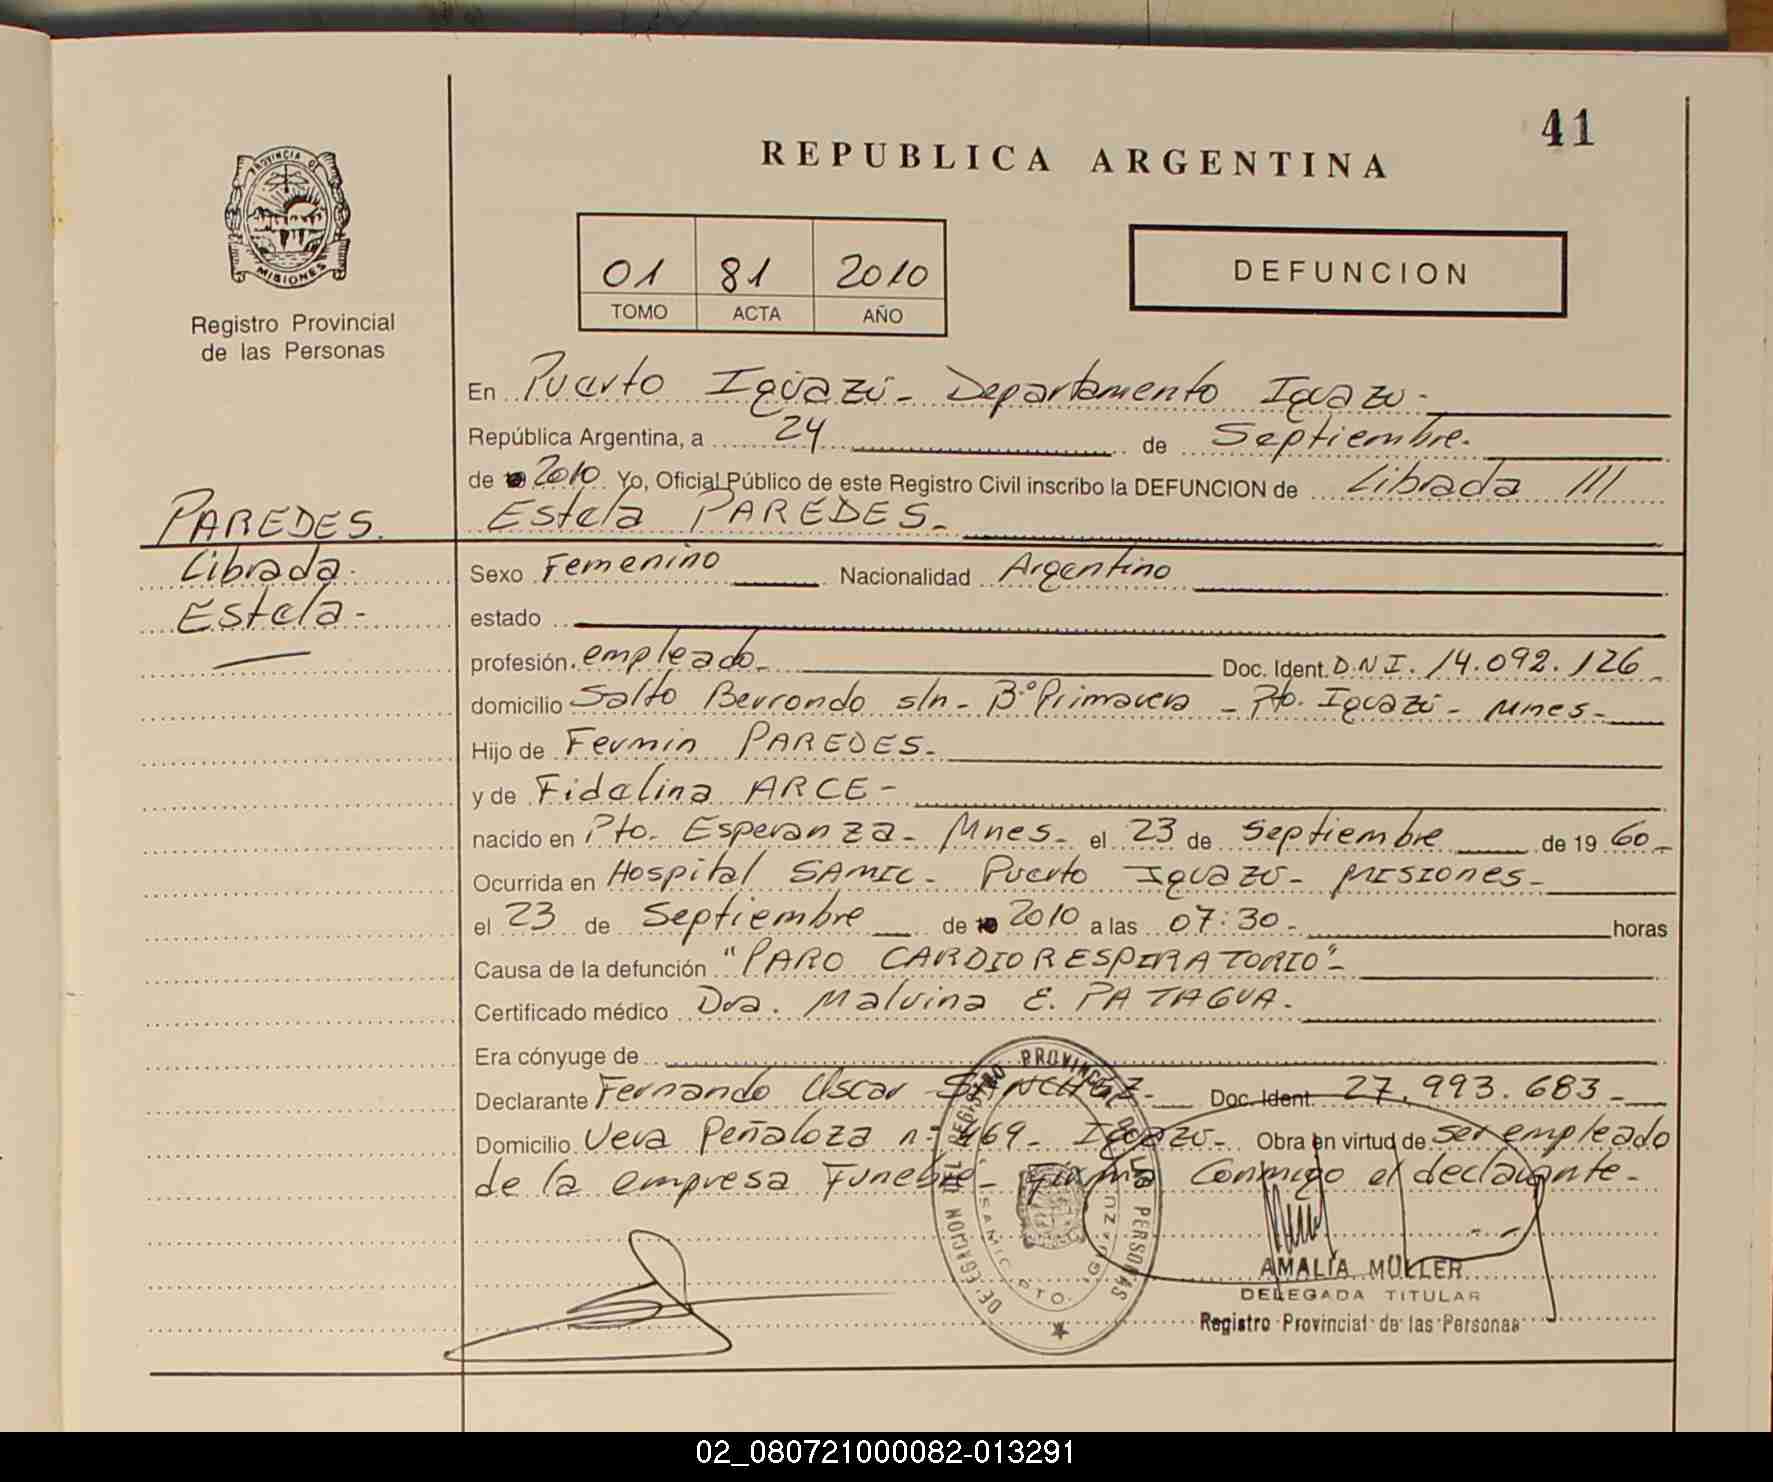 41
REPUBLICA ARGENTINA
PROVINCIA DE
MISIONES
Registro Provincial
de las Personas
01 81 2010
TOMO ACTA AÑO
DEFUNCION
En Puerto Iguazú - Departamento Iguazu -
República Argentina, a 24 de Septiembre.
de 2010 Yo, Oficial Público de este Registro Civil inscribo la DEFUNCION de Librada ///
Estela PAREDES -
PAREDES.
Librada -
Estela -
Sexo Femenino Nacionalidad Argentino
estado
profesión empleado - Doc. Ident. D.N.I. 14.092.126
domicilio Salto Berrondo s/n - B° Primavera - Pto. Iguazú - Mnes -
Hijo de Fermin PAREDES -
y de Fidelina ARCE -
nacido en Pto. Esperanza - Mnes - el 23 de Septiembre de 19 60 -
Ocurrida en Hospital SAMIC - Puerto Iguazu - MISIONES -
el 23 de Septiembre de 2010 a las 07:30 - horas
Causa de la defunción "PARO CARDIORESPIRATORIO" -
Certificado médico Dra. Malvina E. PATAGUA.
Era cónyuge de
Declarante Fernando Oscar SANCHEZ - Doc. Ident. 27.993.683 -
Domicilio Peñaloza n° 469 - Iguazu - Obra en virtud de ser empleado
de la empresa Funebre - Firma conmigo el declarante -
DELEGACION DEL REGISTRO PROVINCIAL DE LAS PERSONAS
SAMIC PTO. IGUAZU
AMALIA MÜLLER
DELEGADA TITULAR
Registro Provincial de las Personas
02_080721000082-013291